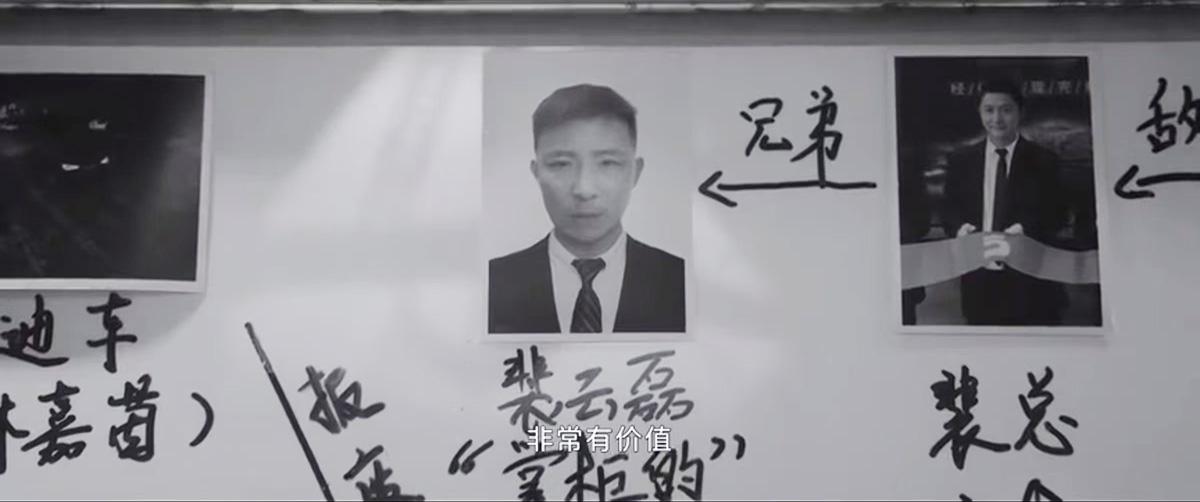 兄弟
迪车
嘉茵）
报
裴云磊
“掌柜的”
裴总
非常有价值